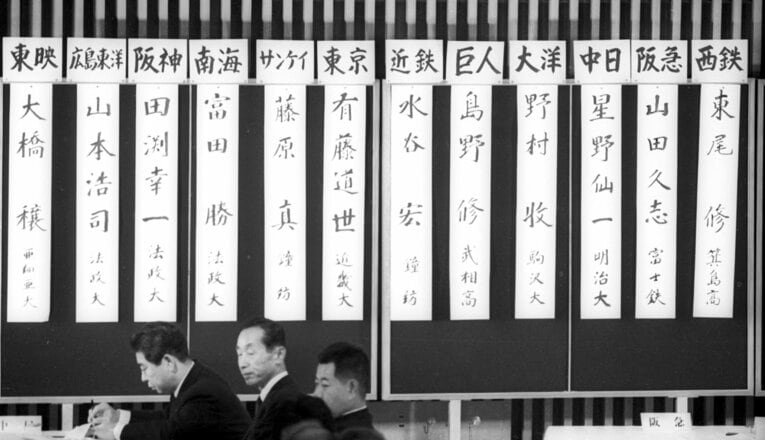 西鉄
東尾 修 箕島高
阪急
山田久志 富士鉄
中日
星野仙一 明治大
大洋
野村 収 駒沢大
巨人
島野 修 武相高
近鉄
水谷 宏 鐘紡
東京
有藤道世 近畿大
サンケイ
藤原 真 鐘紡
南海
富田 勝 法政大
阪神
田渕幸一 法政大
広島東洋
山本浩司 法政大
東映
大橋 穣 亜細亜大
阪急